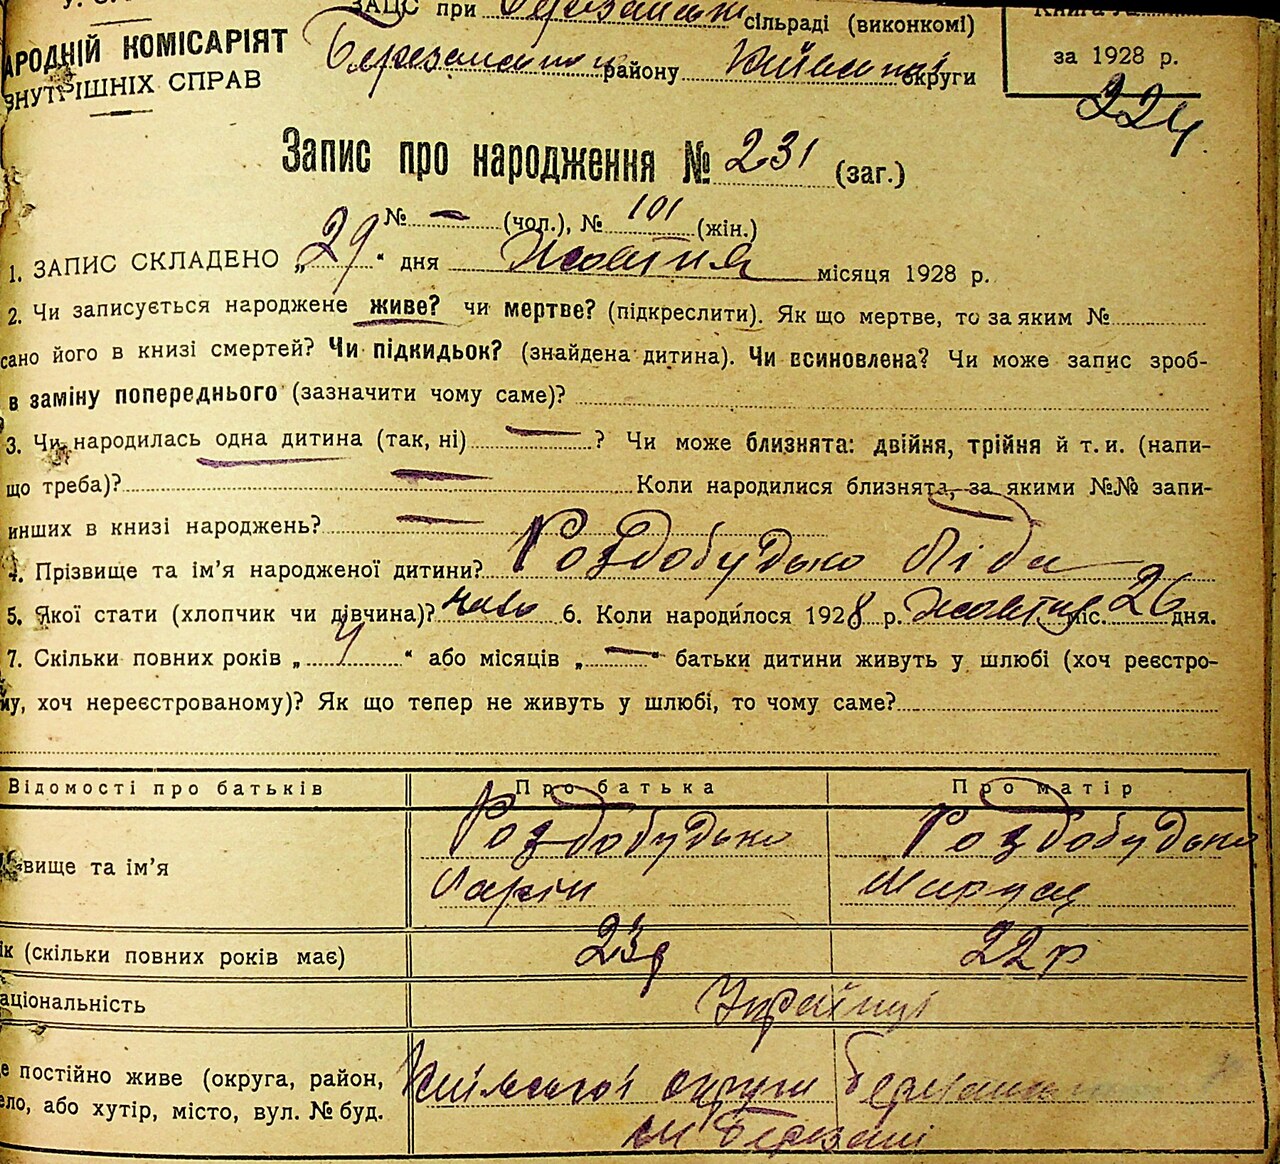 ЗАЦС при Березанські сільраді (виконкомі)
АРОДНІЙ КОМІСАРІЯТ
ВНУТРІШНІХ СПРАВ
Березанського району Київської округи
за 1928 р.
224
Запис про народження № 231 (заг.)
№ — (чол.), № 101 (жін.)
1. ЗАПИС СКЛАДЕНО „29" дня Жовтня місяця 1928 р.
2. Чи записується народжене живе? чи мертве? (підкреслити). Як що мертве, то за яким №
сано його в книзі смертей? Чи підкидьок? (знайдена дитина). Чи всиновлена? Чи може запис зроб-
в заміну попереднього (зазначити чому саме)?
3. Чи народилась одна дитина (так, ні) — ? Чи може близнята: двійня, трійня й т. и. (напи-
що треба)? — Коли народилися близнята, за якими №№ запи-
инших в книзі народжень? —
4. Прізвище та ім'я народженої дитини? Роздобудько Ліда
5. Якої стати (хлопчик чи дівчина)? 6. Коли народилося 1928 р. Жовтня міс. 26 дня.
7. Скільки повних років „ 4 " або місяців „ — " батьки дитини живуть у шлюбі (хоч реєстро-
му, хоч нереєстрованому)? Як що тепер не живуть у шлюбі, то чому саме?
Відомості про батьків Про батька Про матір
звище та ім'я Роздобудько Роздобудько
Ларіон Маруся
ік (скільки повних років має) 23р 22р
аціональність Українці
е постійно живе (округа, район, Київської округи
ело, або хутір, місто, вул. № буд. м Березані